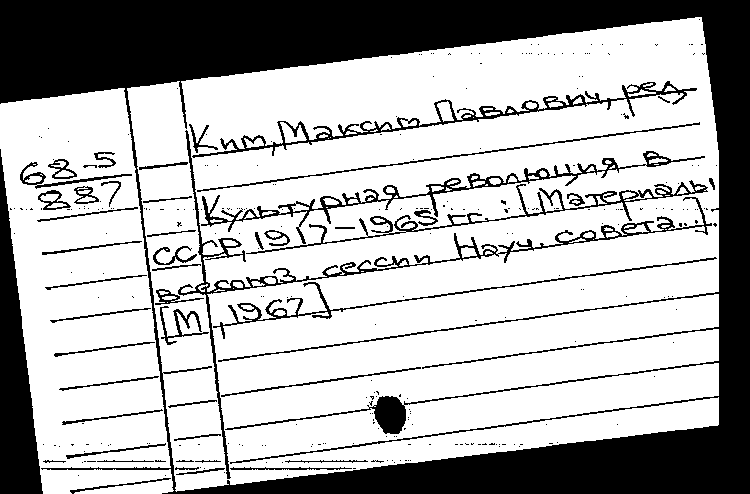 Ким, Максим Павлович, ред
68-5
887
Культурная революция в
СССР, 1917-1965 гг. : [Материалы
всесоюз. сессии Науч. совета...].
[М, 1967]